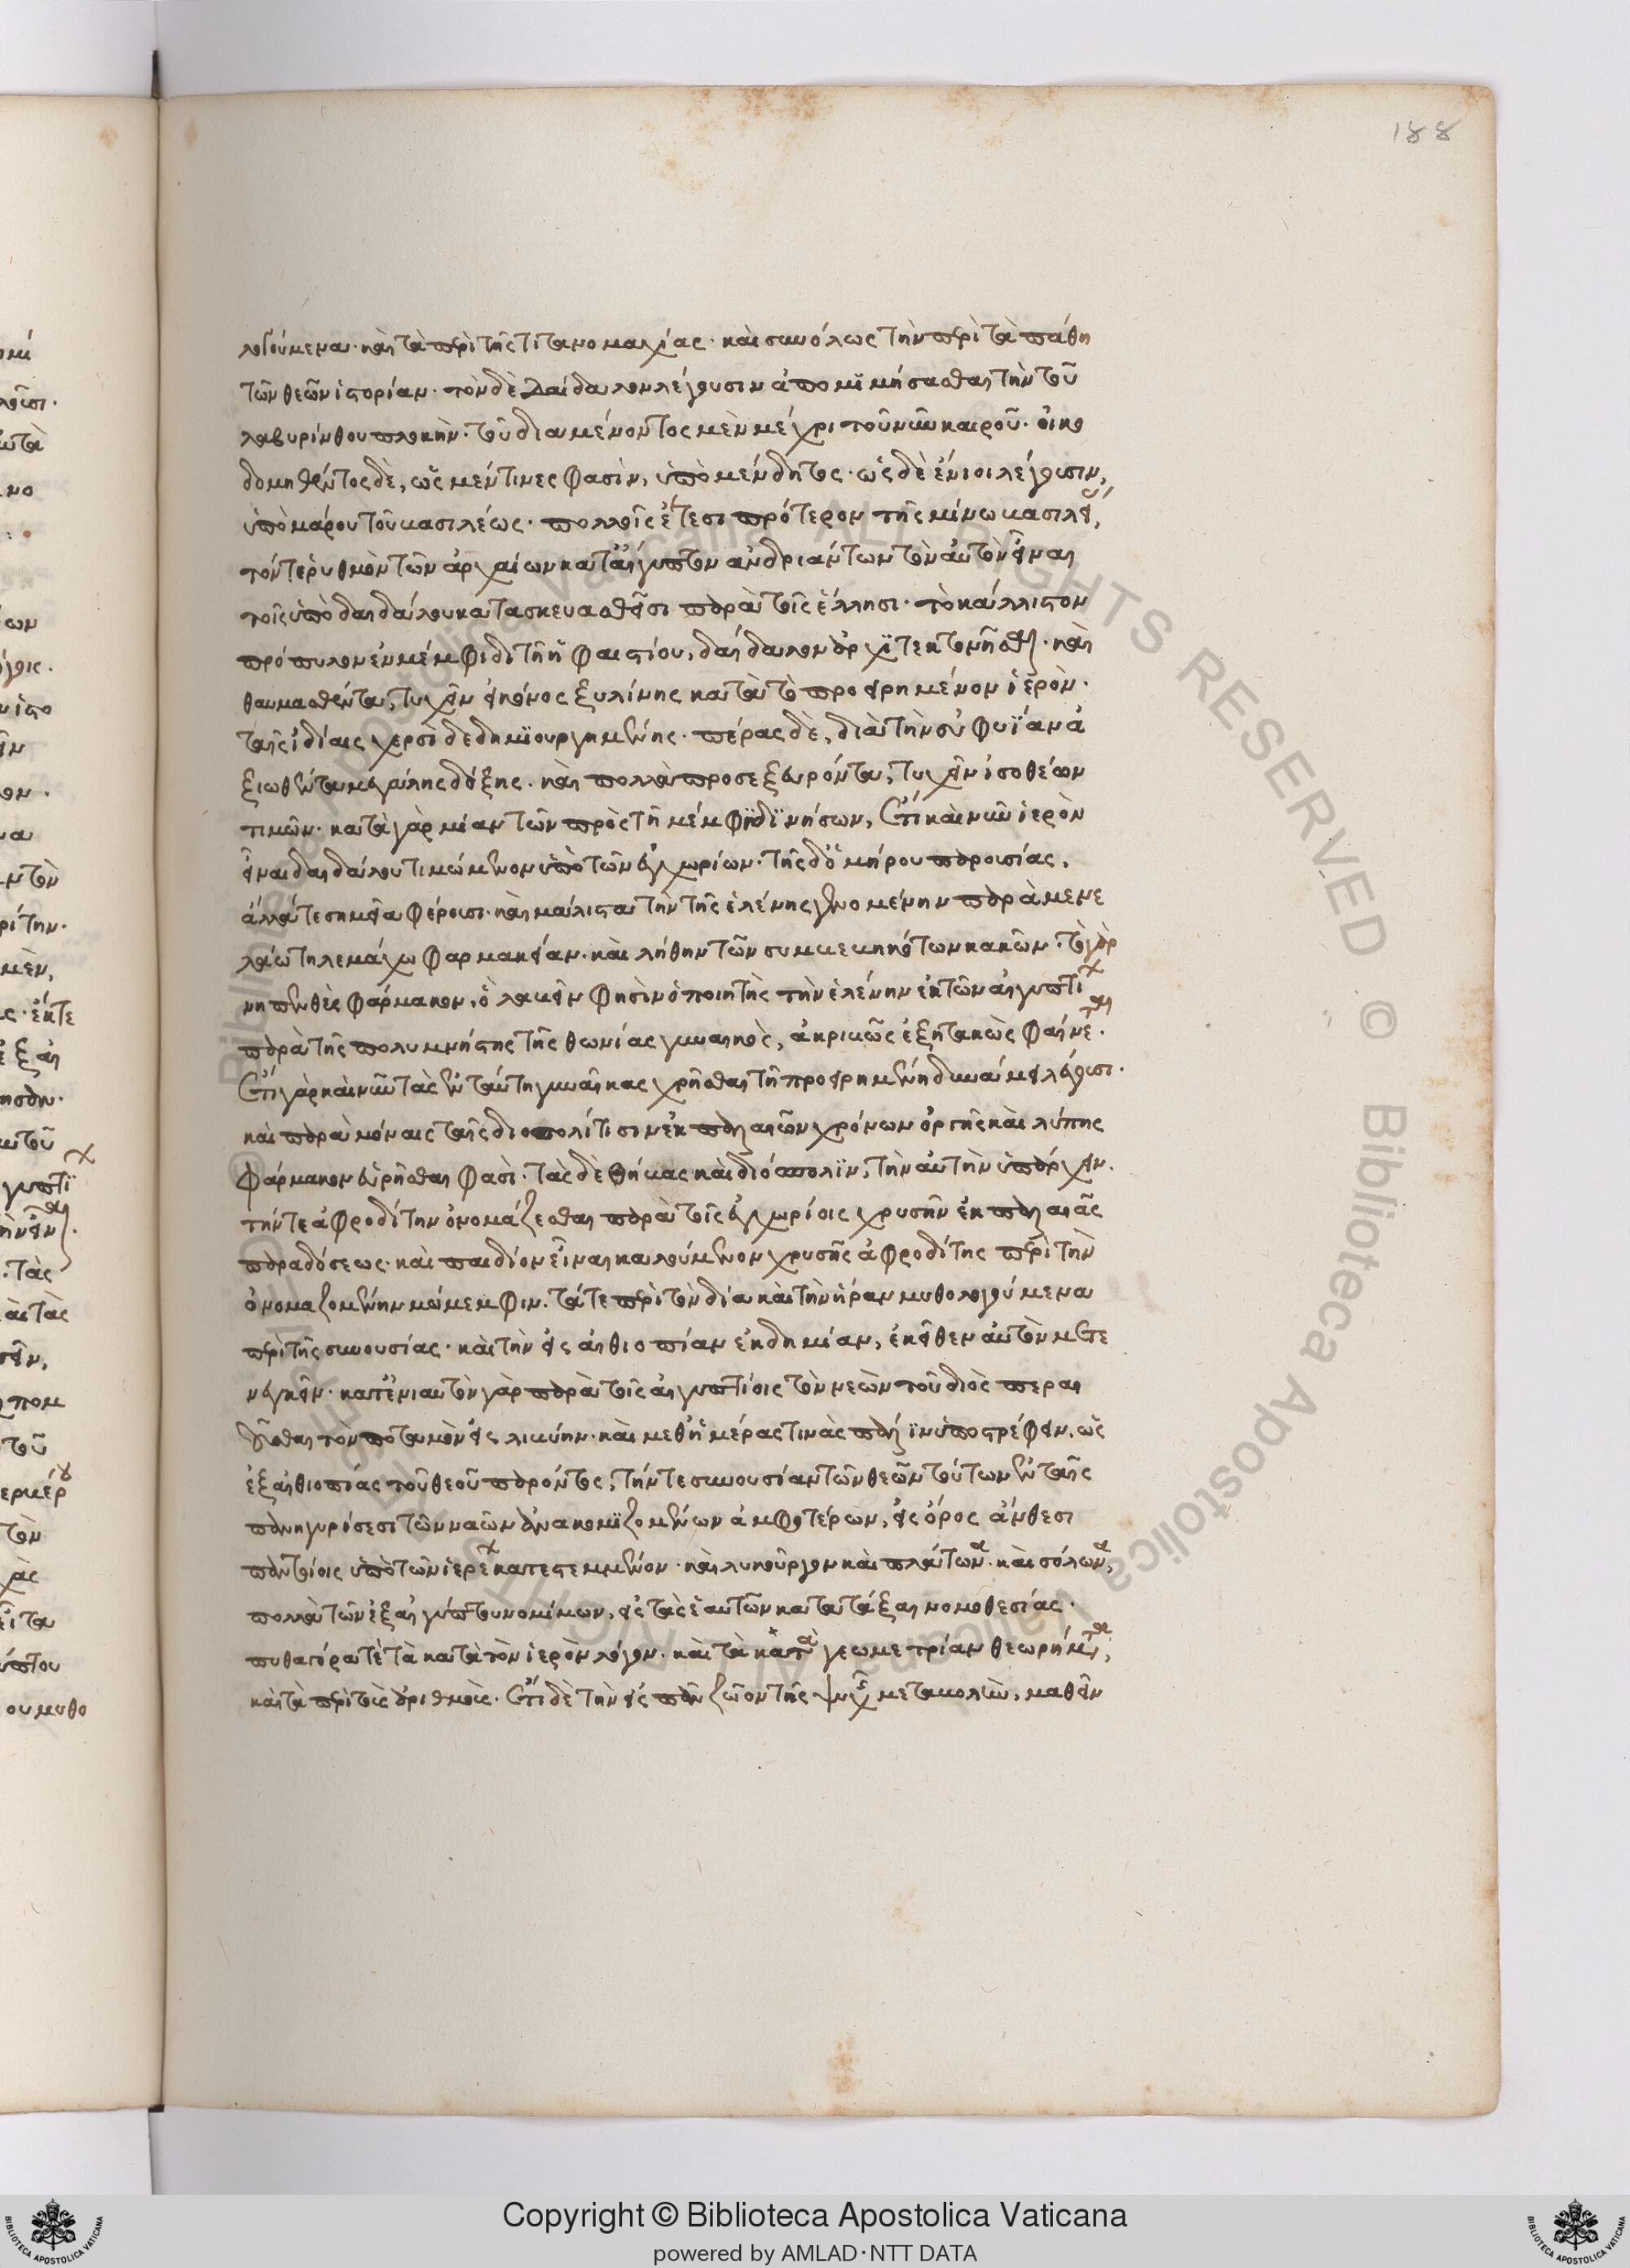 188
λογούμενα· καὶ τὰ περὶ τῆς τιτανομαχίας· καὶ συνόλως τὴν περὶ τὰ πάθη
τῶν θεῶν ἱστορίαν· τὸν δὲ δαίδαλον λέγουσιν ἀπομιμήσασθαι τὴν τοῦ
λαβυρίνθου πλοκὴν· τοῦ διαμένοντος μὲν μέχρι τοῦ νῦν καιροῦ· οἰκο
δομηθέντος δὲ, ὡς μέν τινες φασὶν, ὑπὸ μένδητος· ὡς δὲ ἔνιοι λέγουσιν,
ὑπὸ μάρου τοῦ βασιλέως· πολλοῖς ἔτεσι πρότερον τῆς μίνω βασιλεί,
τόν τε ῥυθμὸν τῶν ἀρχαίων κατ' αἴγυπτον ἀνδριάντων τὸν αὐτὸν εἶναι
τοῖς ὑπὸ δαιδάλου κατασκευασθεῖσι παρὰ τοῖς ἕλλησι· τὸ κάλλιστον
πρόπυλον ἐν μέμφιδι τῆ ἡφαιστίου, δαίδαλον ἀρχιτεκτονῆσαι· καὶ
θαυμασθέντα, τυχεῖν εἰκόνος ξυλίνης κατὰ τὸ προειρημένον ἱερὸν·
ταῖς ἰδίαις χερσὶ δεδημιουργημένης· πέρας δὲ, διὰ τὴν εὐφυΐαν ἀ
ξιωθέντα μεγάλης δόξης· καὶ πολλὰ προσεξευρόντα, τυχεῖν ἰσοθέων
τιμῶν· κατὰ γὰρ μίαν τῶν πρὸς τῆ μέμφιδι νήσων, ἔτι καὶ νῦν ἱερὸν
εἶναι δαιδάλου τιμώμενον ὑπὸ τῶν ἐγχωρίων· τῆς δ' ὁμήρου παρουσίας,
ἄλλά τε σημεῖα φέρουσι· καὶ μάλιστα τὴν τῆς ἑλένης γενομένην παρὰ μενε
λάω τηλεμάχω φαρμακείαν· καὶ λήθην τῶν συμβεβηκότων κακῶν· τὸ γὰρ
νηπενθὲς φάρμακον, ὃ λαβεῖν φησὶν ὁ ποιητὴς τὴν ἑλένην ἐκ τῶν αἰγυπτί
παρὰ τῆς πολυμνήστης τῆς θωνίας γυναικὸς, ἀκριβῶς ἐξητακὼς φαίνεται·
ἔτι γὰρ καὶ νῦν τὰς ἐν ταύτη γυναῖκας χρῆσθαι τῆ προειρημένη δυνάμει λέγουσι·
καὶ παρὰ μόναις ταῖς διοπολίτισιν ἐκ παλαιῶν χρόνων ὀργῆς καὶ λύπης
φάρμακον εὑρῆσθαι φασὶ· τὰς δὲ θήβας καὶ διόσπολιν, τὴν αὐτὴν ὑπάρχειν·
τήν τε ἀφροδίτην ὀνομάζεσθαι παρὰ τοῖς ἐγχωρίοις χρυσῆν ἐκ παλαιᾶς
παραδόσεως· καὶ παιδίον εἶναι καλούμενον χρυσῆς ἀφροδίτης περὶ τὴν
ὀνομαζομένην μώμεμφιν· τά τε περὶ τὸν δία καὶ τὴν ἥραν μυθολογούμενα
περὶ τῆς συνουσίας· καὶ τὴν εἰς αἰθιοπίαν ἐκδημίαν, ἐκεῖθεν αὐτὸν μετε
νεγκεῖν· κατ' ἐνιαυτὸν γὰρ παρὰ τοῖς αἰγυπτίοις τὸν νεὼν τοῦ διὸς περαι
οῦσθαι τὸν ποταμὸν εἰς λιβύην· καὶ μεθ' ἡμέρας τινὰς πάλιν ὑποστρέφειν, ὡς
ἐξ αἰθιοπίας τοῦ θεοῦ παρόντος, τήν τε συνουσίαν τῶν θεῶν τούτων ἐν ταῖς
πανηγύρεσι τῶν ναῶν ἀνακομιζομένων ἀμφοτέρων, εἰς ὄρος ἄνθεσι
παντοίοις ὑπὸ τῶν ἱερέων κατεστεμμένον· καὶ λυκοῦργον καὶ πλάτωνα· καὶ σόλωνα,
πολλὰ τῶν ἐξ αἰγύπτου νομίμων, εἰς τὰς ἑαυτῶν κατατάξαι νομοθεσίας·
πυθαγόρα τὲ τὰ κατὰ τὸν ἱερὸν λόγον· καὶ τὰ κατὰ γεωμετρίαν θεωρήματα,
καὶ τὰ περὶ τοὺς ἀριθμοὺς· ἔτι δὲ τὴν εἰς πᾶν ζῶον τῆς ψυχῆς μεταβολὴν, μαθεῖν
Copyright © Biblioteca Apostolica Vaticana
powered by AMLAD·NTT DATA